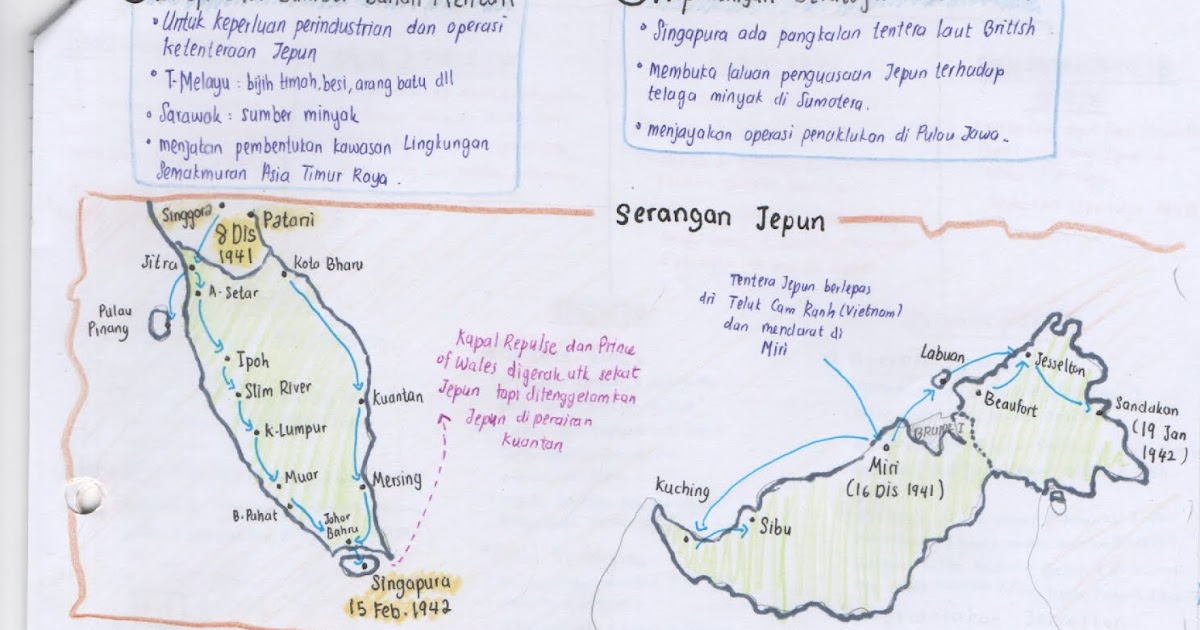 • Untuk keperluan perindustrian dan operasi
ketenteraan Jepun
• T-Melayu : bijih timah, besi, arang batu dll
• Sarawak : sumber minyak
• menjayakan pembentukan kawasan Lingkungan
Semakmuran Asia Timur Raya.
• Singapura ada pangkalan tentera laut British
• membuka laluan penguasaan Jepun terhadap
telaga minyak di Sumatera.
• menjayakan operasi penaklukan di Pulau Jawa.
Serangan Jepun
Singgora
Patani
8 Dis
1941
Jitra
Kota Bharu
A-Setar
Pulau
Pinang
Ipoh
Slim River
Kuantan
K-Lumpur
Muar
Mersing
B. Pahat
Johor
Bahru
Singapura
15 Feb. 1942
Kapal Repulse dan Prince
of Wales digerak utk sekat
Jepun tapi ditenggelamkan
Jepun di perairan
Kuantan
Tentera Jepun berlepas
dri Teluk Cam Ranh (Vietnam)
dan mendarat di
Miri
Labuan
Jesselton
Beaufort
Sandakan
(19 Jan
1942)
BRUNEI
Miri
(16 Dis 1941)
Kuching
Sibu